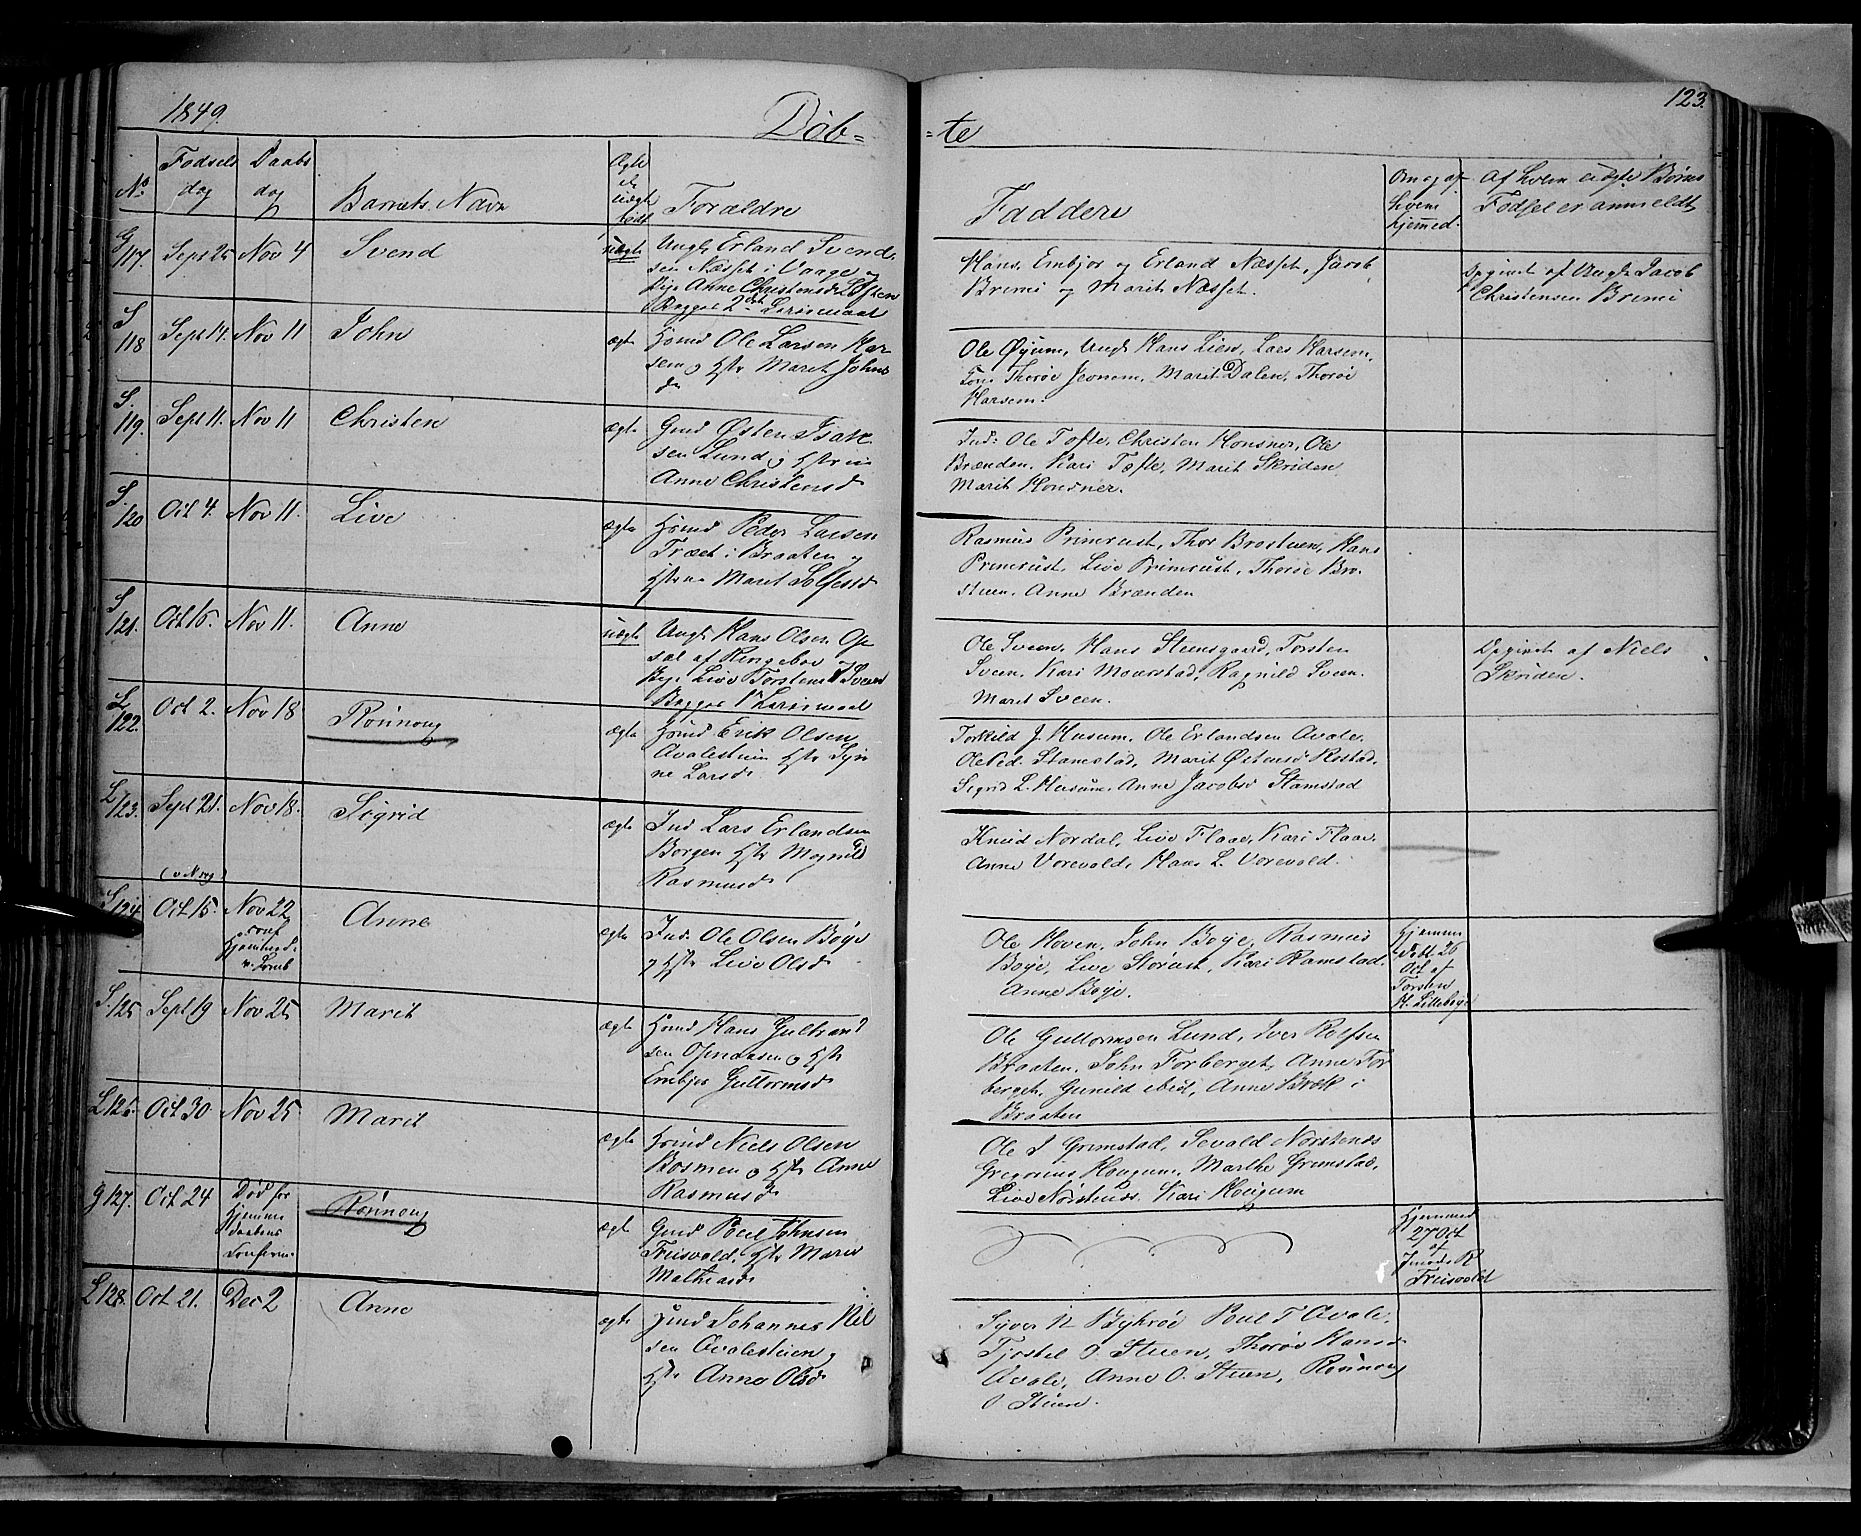 1849.
Döb=
=te
123.
No
Fødsels
dag
Daabs
dag
Barnets Navn
Ægte
el.
uægte
født
Forældre
Faddere
Om og af
hvem
hjemmed.
Af hvem uægte Børns
Fødsel er anmeldt
G
117.
Sept 25
Nov 4
Svend
uægte
Ungk. Erland Svend-
sen Næsset i Vaage og
Pige Anne Christensd
Begges 2det Leiermaal
Hans, Embjør og Erland Næsset, Jacob
Bremi og Marit Næsset.
Opgivet af Ungk. Jacob
Christensen Bremi
S
118
Sept 14.
Nov 11
John
ægte
Hmd Ole Larsen Har
sem og Hstr Marit Johns
dr
Ole Øyum, Ungk Hans Lien, Lars Harsem,
Kone Thorøe Jevnem, Marit Dalen, Thorøe
Harsem.
S.
119.
Sept 11.
Nov 11
Christen
ægte
Gmd Østen Isak
sen Lund og Hstrue
Anne Christensd
Ind: Ole Tofte, Christen Honsner, Ole
Brænden, Kari Tofte, Marit Skriden
Marit Honsner.
S.
120
Oct 4.
Nov 11.
Live
ægte
Hsmd Peder Larsen
Træet i Braaten og
Hstrue Marit Solfestd
Rasmus Primrust, Thor Brostuen, Hans
Primrust, Live Primrust, Thorøe Bro-
stuen, Anne Brænden
S
121.
Oct 16.
Nov 11.
Anne
uægte
Ungk Hans Olsen Op
sal af Ringeboe
Pige Live Torstensd Sveen
Begges 1ste Leiermaal
Ole Sveen, Hans Steensgaard, Torsten
Sveen, Kari Moarstad, Ragnild Sveen.
Marit Sveen.
Opgivet af Niels
Skriden.
L
122.
Oct 2.
Nov 18
Rønnoug
ægte
Hsmd Erik Olsen
Avalestuen Hstr Syn
ne Larsd.
Torkild J. Husum, Ole Erlandsen Avale,
Ole Ped. Stamstad, Marit Østensd Rostad,
Sigrid L. Husum, Anne Jacobsd Stamstad
L
123.
Sept 21.
Nov 18.
Sigrid
ægte
Ind Lars Erlandsen
Borgen Hstr Magnild
Rasmusd
Knud Nordal, Live Flaae, Kari Flaae,
Anne Vorevold, Hans L. Vorevold.
S
124
Oct 15.
Nov 22
conf
Hjemmed.
v. Lomb
Anne
ægte
Ind. Ole Olsen Bøye
og Hstr Live Olsd
Ole Hoven, John Bøye, Rasmus
Bøye, Live Storust, Kari Ramstad
Anne Bøye.
Hjemme
døbt 26
Oct af
Torsten
H. Lillebøye
S.
125
Sept 19
Nov 25
Marit
ægte
Hsmd Hans Gulbrand
sen Opnaasen og Hstr
Embjør Guttormsd
Ole Guttormsen Lund, Iver Rolfsen
Braaten, John Forberget, Anne For
berget, Gunild ibid, Anne Bræk i
Braaten
L 126.
Oct 30
Nov 25
Marit
ægte
Hsmd Niels Olsen
Bosmen og Hstr Anne
Rasmusd
Ole J Grimstad, Sevald Norstends
Gregorius Hougum, Marthe Grimstad,
Live Norstends. Kari Hougum
G 127.
Oct 24
Død før
Hjemme
daabens
Confirm.
Rønnoug
ægte
Gmd Poul Johnsen
Freisvold, Hstr Marie
Mathiasd
Hjemmed
27 Oct
af
R
Freisvold
L 128.
Oct 21.
Dec 2
Anne
ægte
Hsmd Johannes Niel
sen Avalestuen og
Hstr Anne Olsd
Syver N Bykrøe Poul T Avale,
Tjostel O. Stuen, Thorøe Hansd
Avale, Anne O. Stuen, Rønnoug
O Stuen.